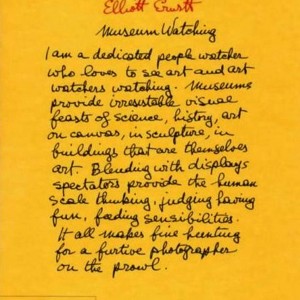 Elliott Erwitt
Museum Watching
I am a dedicated people watcher
who loves to see art and art
watchers watching. Museums
provide irresistable visual
feasts of science, history, art
on canvas, in sculpture, in
buildings that are themselves
art. Blending with displays
spectators provide the human
scale thinking, judging having
fun, feeding sensibilities.
It all makes fine hunting
for a furtive photographer
on the prowl.